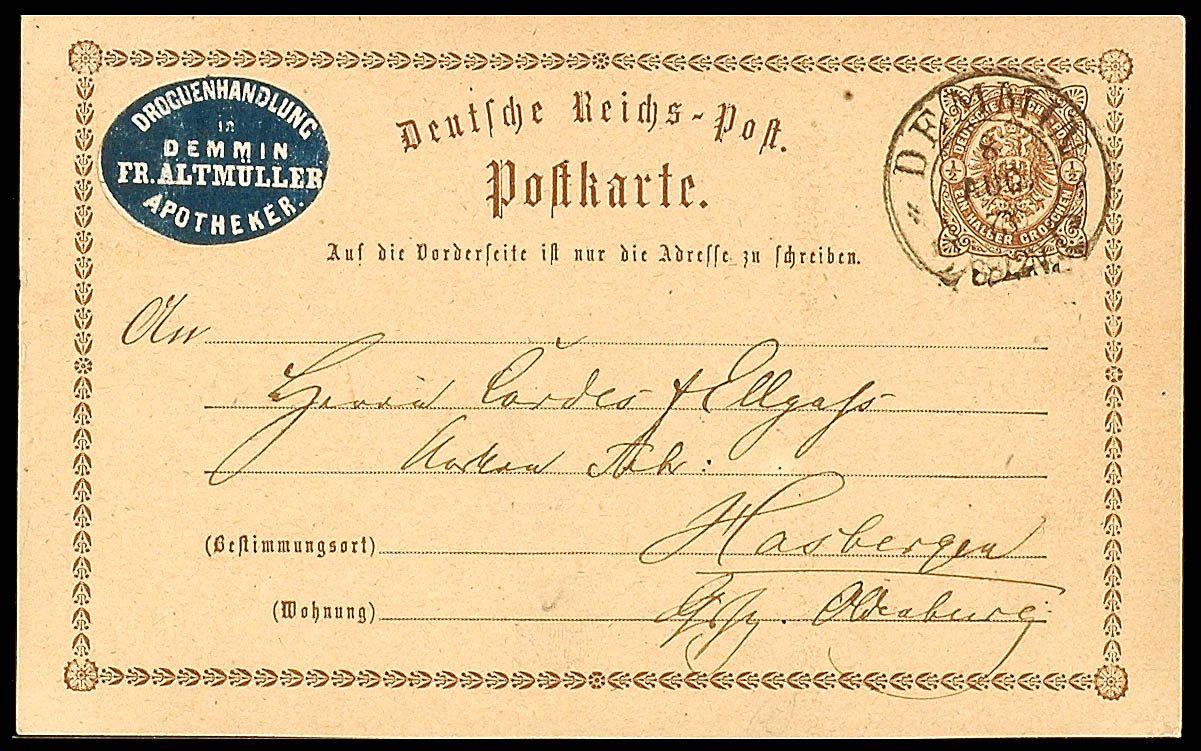 DROGUENHANDLUNG
in
DEMMIN
FR. ALTMÜLLER
APOTHEKER.
Deutsche Reichs-Post.
Postkarte.
DEUTSCHE REICHS-POST
½ ½
EIN HALBER GROSCHEN
DEMMIN
8
AUG
Auf die Vorderseite ist nur die Adresse zu schreiben.
An
Herrn Cordes & Ellgass
Korken Fabr:
(Bestimmungsort) Hasbergen
(Wohnung) Oldenburg